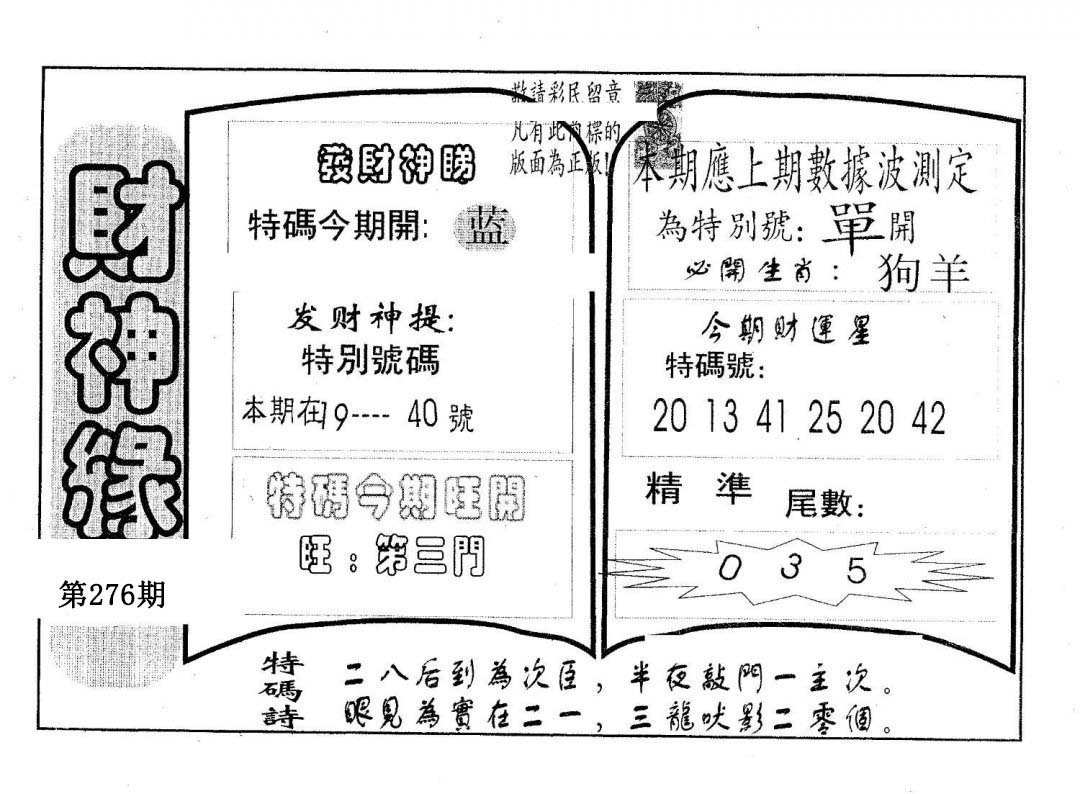 財神緣
第276期
敬請彩民留意
凡有此商標的
版面為正版!
發財神睇
特碼今期開: 蓝
发财神提:
特別號碼
本期在19---- 40號
特碼今期旺開
旺:第三門
本期應上期數據波測定
為特別號: 單開
必開生肖: 狗羊
今期財運星
特碼號:
20 13 41 25 20 42
精準 尾數:
0 3 5
特碼詩
二八后到為次臣,半夜敲門一主次。
眼見為實在二一,三龍吠影二零個。